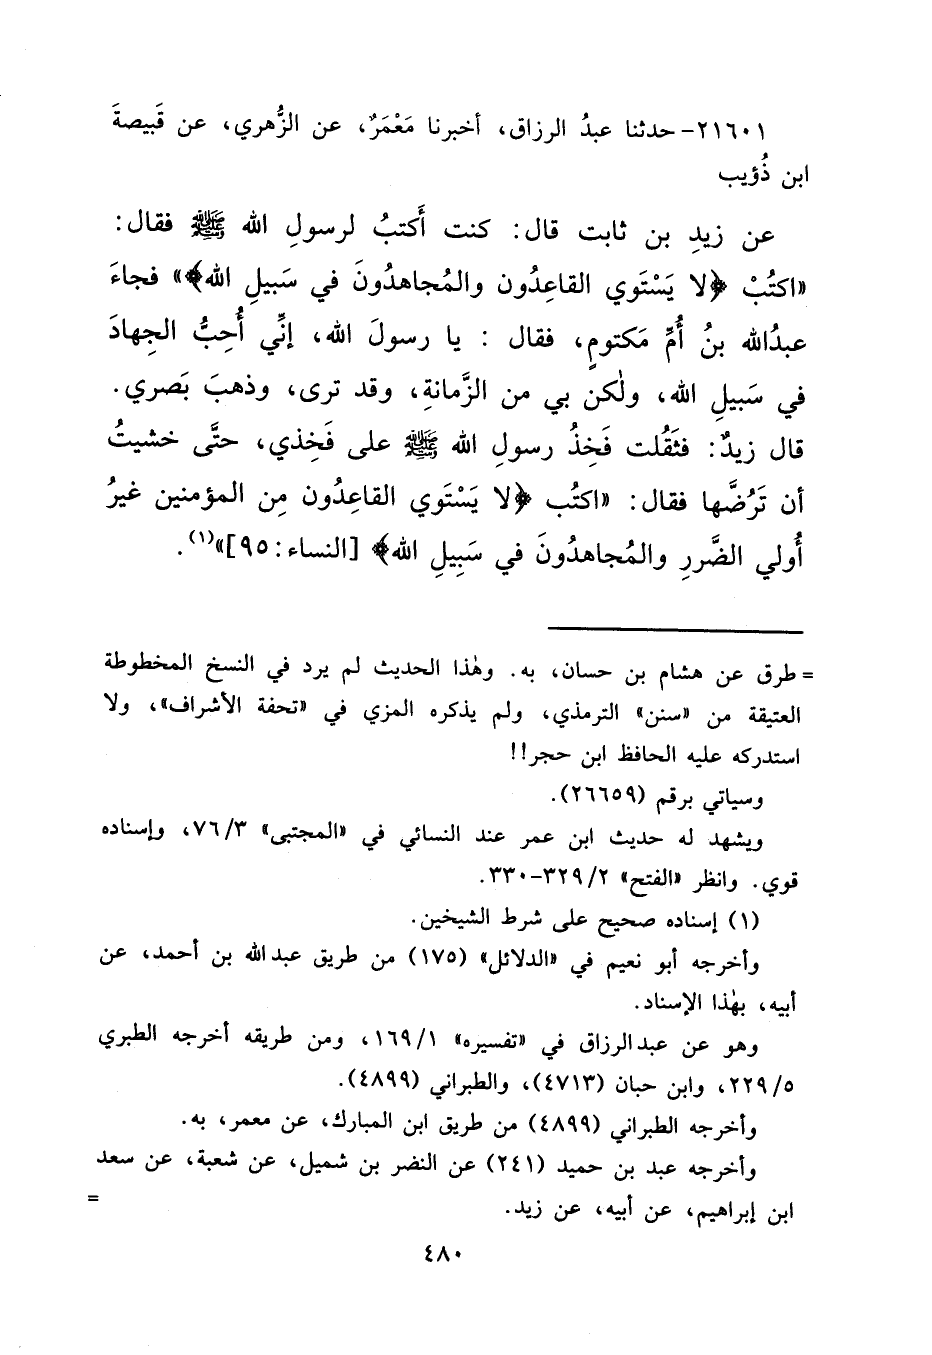 ٢١٦٠١- حدثنا عبدُ الرزاق، أخبرنا مَعْمَرٌ، عن الزُّهري، عن قَبيصةَ
ابن ذُؤيب
عن زيدِ بن ثابت قال: كنت أَكتبُ لرسولِ الله ﷺ فقال:
«اكتُبْ ﴿لا يَسْتَوي القاعِدُون والمُجاهدُونَ في سَبيلِ الله﴾» فجاءَ
عبدُالله بنُ أُمِّ مَكتومٍ، فقال : يا رسولَ الله، إنِّي أُحِبُّ الجِهادَ
في سَبيلِ الله، ولٰكن بي من الزَّمانةِ، وقد ترى، وذهبَ بَصري.
قال زيدٌ: فثَقُلت فَخِذُ رسولِ الله ﷺ على فَخِذي، حتَّى خشيتُ
أن تَرُضَّها فقال: «اكتُب ﴿لا يَسْتَوي القاعِدُون مِن المؤمنين غيرُ
أُولي الضَّررِ والمُجاهدُونَ في سَبِيلِ الله﴾ [النساء: ٩٥]»(١).
= طرق عن هشام بن حسان، به. وهٰذا الحديث لم يرد في النسخ المخطوطة
العتيقة من «سنن» الترمذي، ولم يذكره المزي في «تحفة الأشراف»، ولا
استدركه عليه الحافظ ابن حجر!!
وسياتي برقم (٢٦٦٥٩).
ويشهد له حديث ابن عمر عند النسائي في «المجتبى» ٧٦/٣، وإسناده
قوي. وانظر «الفتح» ٣٢٩/٢-٣٣٠.
(١) إسناده صحيح على شرط الشيخين.
وأخرجه أبو نعيم في «الدلائل» (١٧٥) من طريق عبدالله بن أحمد، عن
أبيه، بهٰذا الإسناد.
وهو عن عبدالرزاق في «تفسيره» ١٦٩/١، ومن طريقه أخرجه الطبري
٢٢٩/٥، وابن حبان (٤٧١٣)، والطبراني (٤٨٩٩).
وأخرجه الطبراني (٤٨٩٩) من طريق ابن المبارك، عن معمر، به.
وأخرجه عبد بن حميد (٢٤١) عن النضر بن شميل، عن شعبة، عن سعد
ابن إبراهيم، عن أبيه، عن زيد. =
٤٨٠